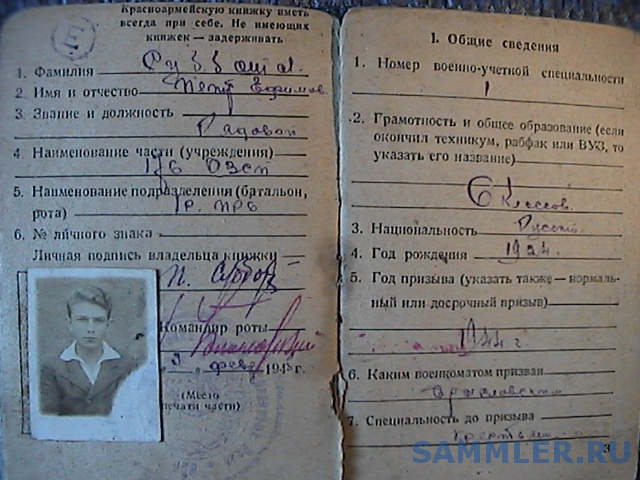 Красноармейскую книжку иметь
всегда при себе. Не имеющих
книжек — задерживать
1. Фамилия
2. Имя и отчество Петр Ефимов
3. Звание и должность
Рядовой
4. Наименование части (учреждения)
ОЗСП
5. Наименование подразделения (батальон,
рота)
6. № личного знака
Личная подпись владельца книжки
Командир роты
февр 194 г.
(Место
печати части)
1. Общие сведения
1. Номер военно-учетной специальности
1
2. Грамотность и общее образование (если
окончил техникум, рабфак или ВУЗ, то
указать его название)
6 классов
3. Национальность Русский
4. Год рождения 1924
5. Год призыва (указать также — нормаль-
ный или досрочный призыв)
1944 г
6. Каким военкоматом призван
7. Специальность до призыва
SAMMLER.RU